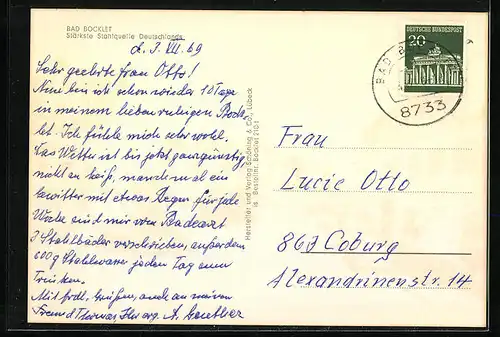 BAD BOCKLET
Stärkste Stahlquelle Deutschlands
d. 3. VII. 69
Sehr geehrte Frau Otto!
Nun bin ich schon wieder 10 Tage
in meinem lieben ruhigen Bock-
let. Ich fühle mich sehr wohl.
Das Wetter ist bis jetzt ganz günstig
nicht zu heiß, manchmal ein
Gewitter mit etwas Regen für jede
Woche sind mir vom Badearzt
3 Stahlbäder verschrieben, außerdem
600 g Stahlwasser jeden Tag zum
Trinken.
Mit frdl. Grüßen, auch an meinen
Freund Thomas, Ihr erg. A.
Hersteller und Verlag Schöning & Co., Lübeck
Bestellnr. Bocklet 210
DEUTSCHE BUNDESPOST
20
BAD
8733
Frau
Lucie Otto
863 Coburg
Alexandrinenstr. 14